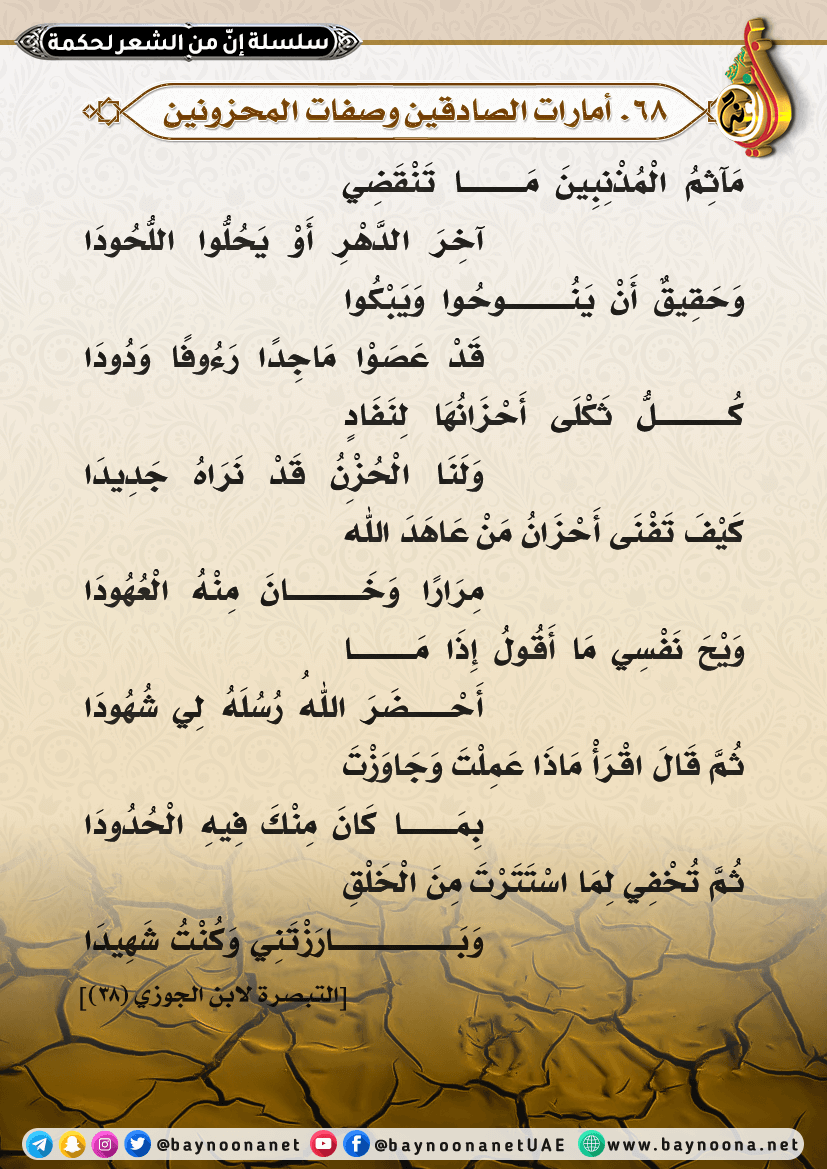 سلسلة إنّ من الشعر لحكمة
٦٨. أمارات الصادقين وصفات المحزونين
مَآثِمُ الْمُذْنِبِينَ مَـــا تَنْقَضِي
آخِرَ الدَّهْرِ أَوْ يَحُلُّوا اللُّحُودَا
وَحَقِيقٌ أَنْ يَنُـــوحُوا وَيَبْكُوا
قَدْ عَصَوْا مَاجِدًا رَءُوفًا وَدُودَا
كُـــلُّ ثَكْلَى أَحْزَانُهَا لِنَفَادٍ
وَلَنَا الْحُزْنُ قَدْ نَرَاهُ جَدِيدَا
كَيْفَ تَفْنَى أَحْزَانُ مَنْ عَاهَدَ الله
مِرَارًا وَخَـــانَ مِنْهُ الْعُهُودَا
وَيْحَ نَفْسِي مَا أَقُولُ إِذَا مَـــا
أَحْـــضَرَ اللهُ رُسُلَهُ لِي شُهُودَا
ثُمَّ قَالَ اقْرَأْ مَاذَا عَمِلْتَ وَجَاوَزْتَ
بِمَـــا كَانَ مِنْكَ فِيهِ الْحُدُودَا
ثُمَّ تُخْفِي لِمَا اسْتَتَرْتَ مِنَ الْخَلْقِ
وَبَـــارَزْتَنِي وَكُنْتُ شَهِيدَا
[التبصرة لابن الجوزي (٣٨)]
@baynoonanet @baynoonanetUAE www.baynoona.net